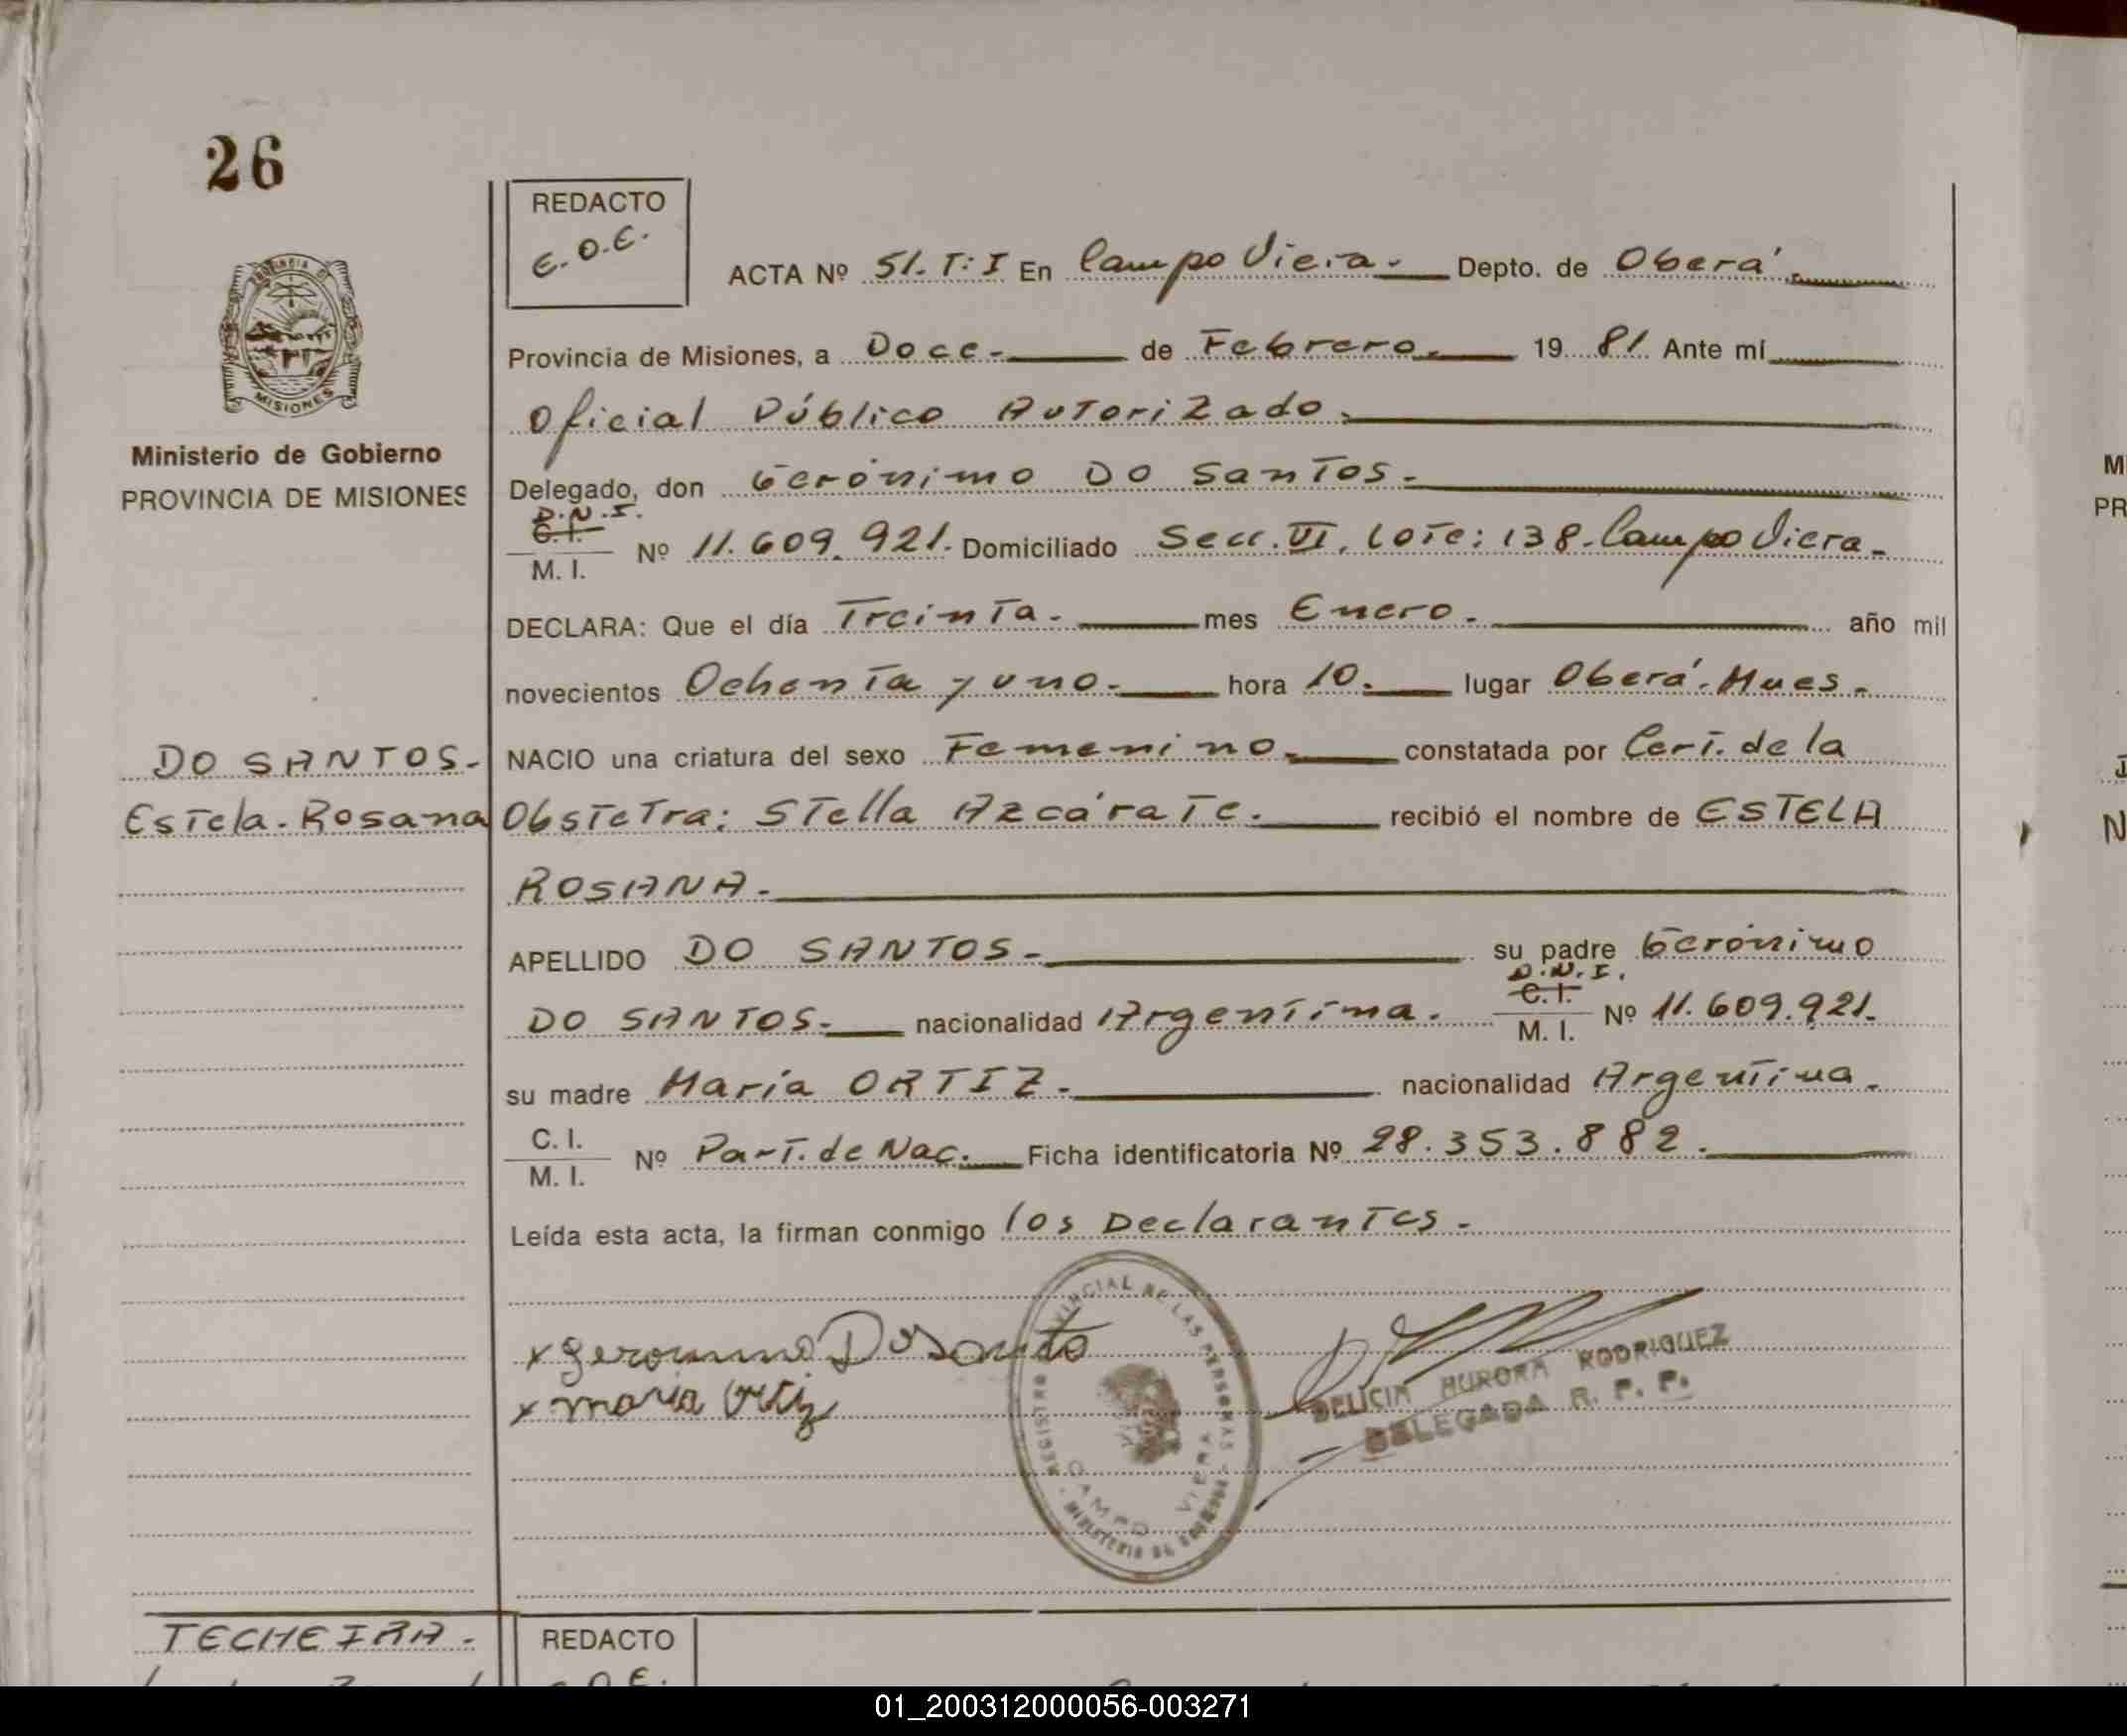 26
REDACTO
E.O.E.
ACTA Nº 51. T: I En Campo Viera.- Depto. de Oberá.
Provincia de Misiones, a Doce.- de Febrero.- 19 81. Ante mí
Oficial Público Autorizado.
PROVINCIA DE
MISIONES
Ministerio de Gobierno
PROVINCIA DE MISIONES
Delegado, don Gerónimo DO SanTos.-
D.N.I.
C.I.
M. I. Nº 11.609.921. Domiciliado Secc. VI, Lote: 138. Campo Viera.-
DECLARA: Que el día Treinta.- mes Enero.- año mil
novecientos Ochenta y uno.- hora 10.- lugar Oberá. Mnes.-
DO SANTOS.-
Estela. Rosana
NACIO una criatura del sexo Femenino.- constatada por Cert. de la
Obstetra: Stella Azcárate.- recibió el nombre de ESTELA
ROSANA.-
APELLIDO DO SANTOS.- su padre Gerónimo
DO SANTOS.- nacionalidad Argentina. D.N.I. C.I. M. I. Nº 11.609.921.
su madre María ORTIZ.- nacionalidad Argentina.-
C. I.
M. I. Nº Part. de Nac.- Ficha identificatoria Nº 28.353.882.-
Leída esta acta, la firman conmigo los Declarantes.-
x Geronimo Do Santo
x maria Ortiz
REGISTRO PROVINCIAL DE LAS PERSONAS
CAMPO VIERA
MINISTERIO DE GOBIERNO
DELICIA AURORA RODRIGUEZ
DELEGADA R. P. P.
TECHEIRA.-
REDACTO
01_200312000056-003271